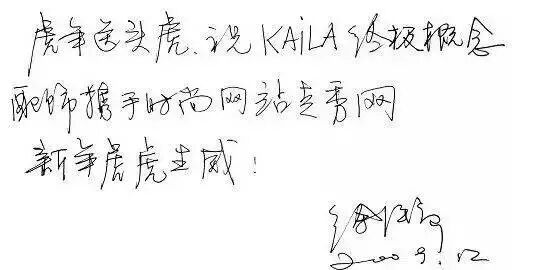 虎年送头虎.说KAiLA终极概念
配饰携手时尚网站走秀网
新年虎虎生威!
2009.12